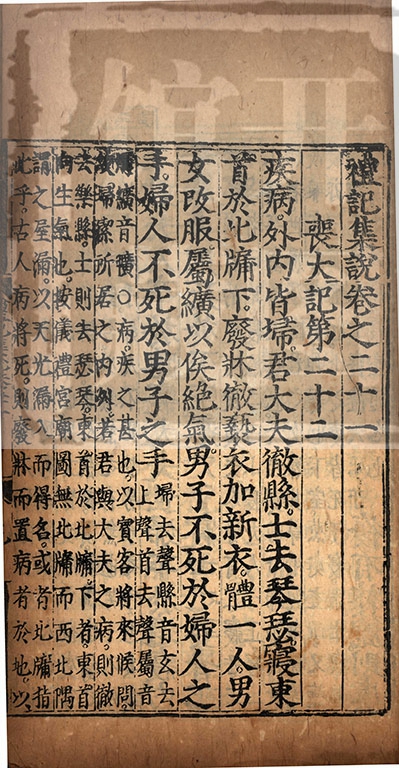 禮記集說卷之二十一
喪大記第二十二
疾病。外內皆埽。君大夫徹縣。士去琴瑟。寢東
首於北牖下。廢牀徹褻衣。加新衣。體一人。男
女改服。屬纊以俟絕氣。男子不死於婦人之
手。婦人不死於男子之手
埽去聲縣音玄去
上聲首去聲屬音
燭纊音曠○病。疾之甚也。以賓客將來候問。
故埽潔所居之內外。若君與大夫之病。則徹
去樂縣。士則去琴瑟。東首於北牖下者。東首
向生氣也。按儀禮宮廟圖無北牖而西北隅
謂之屋漏。以天光漏入而得名。或者北牖指
此乎。古人病將死。則廢牀而置病者於地。以